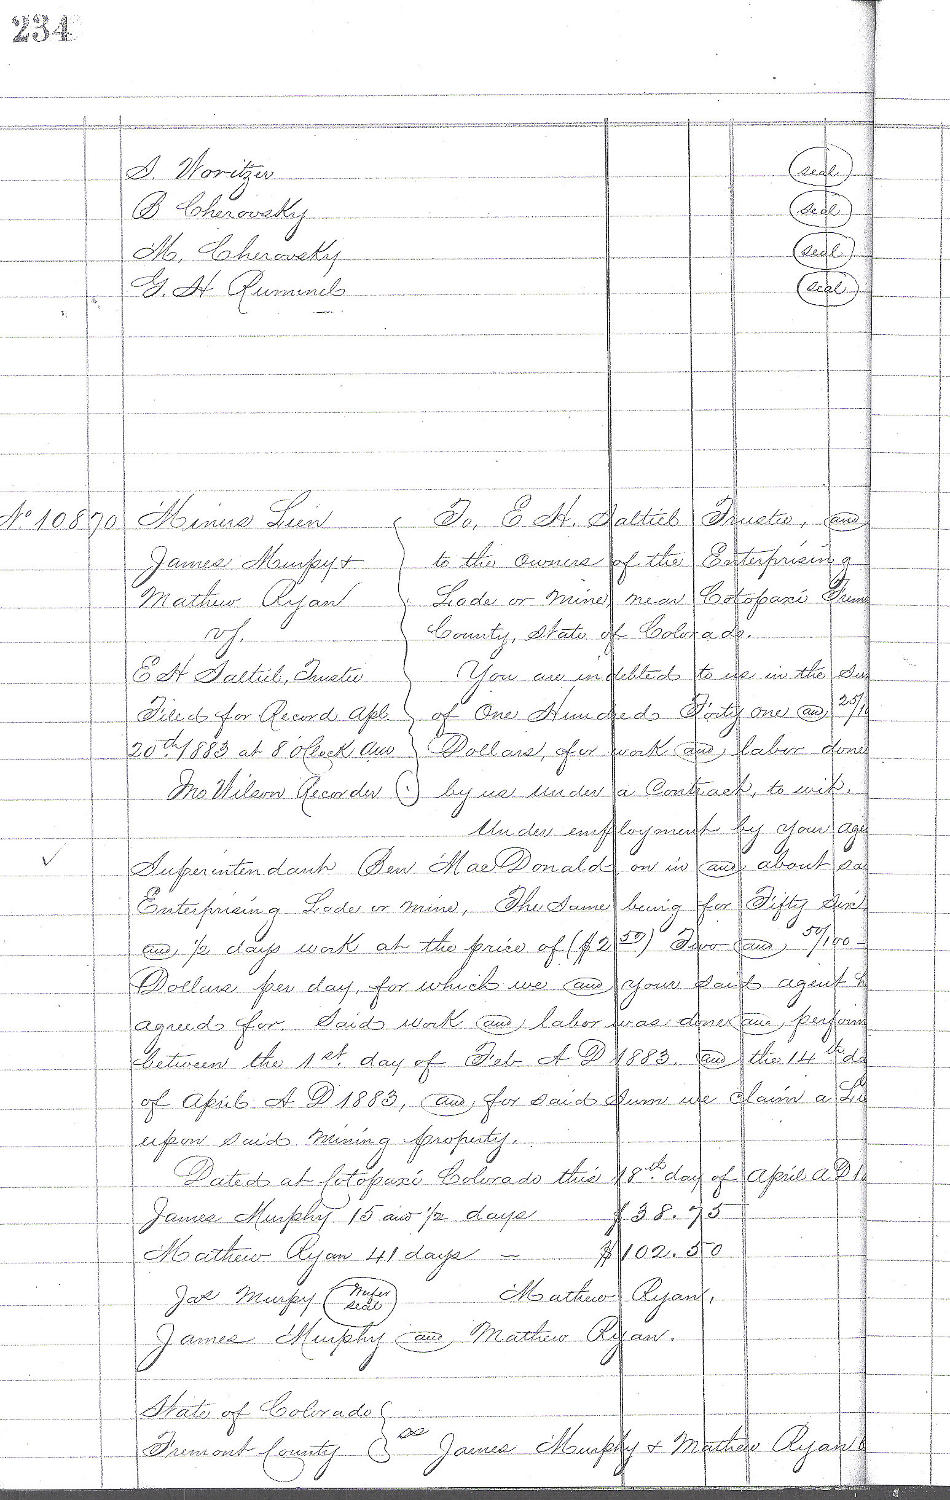 234
S. Woritzer seal
B Cherovsky seal
M. Cherovsky seal
G. H seal
No 10870 Miners Lien To, E. H. Saltiel Trustee, and
James Murpy & to the owners of the Enterprising
Mathew Ryan Lode or Mine, near Cotopaxi Frem
vs. County, State of Colorado.
E H Saltiel, Trustee You are indebted to us in the Su
Filed for Record Apl. of One Hundred Forty one and 25/10
20th 1883 at 8 oClock am Dollars, for work and labor done
Jno Wilson Recorder by us under a Contrack, to wit.
Under employment by your age
Superintendant Ben MacDonald, on in and about sa
Enterprising Lode or Mine, The Same being for Fifty Six
and 1/2 days work at the price of ($2 50) Two and 50/100 -
Dollars per day, for which we and your said agent h
agreed for. Said work and labor was done and perform
between the 1st. day of Feb A D 1883. and the 14th da
of April A D 1883, and for said Sum we claim a Li
upon said mining property.
Dated at Cotopaxi Colorado this 18th day of April A D 1
James Murphy 15 and 1/2 days $38.75
Mathew Ryan 41 days – $102.50
Jas Murpy seal Mathew Ryan.
James Murphy and Mathew Ryan.
State of Colorado
Fremont County ss James Murphy & Mathew Ryan